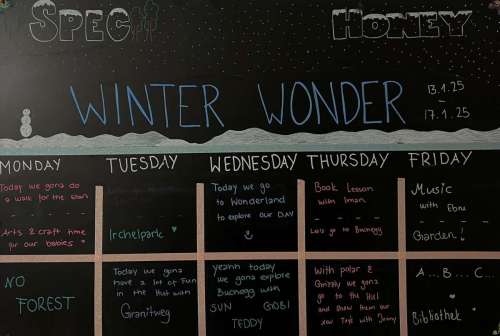 SPEC
HONEY
WINTER WONDER
13.1.25
-
17.1.25
MONDAY
TUESDAY
WEDNESDAY
THURSDAY
FRIDAY
Today we gona do
a walk for the
Arts & craft time
for our babies
Irchelpark
Today we go
to Wonderland
to explore our DAY
Book Lesson
with Iman
Lets go to Bucnegg
Music
with Ebru
Garden!
NO
FOREST
Today we gona
have a lot of Fun
in the
Granitweg
yeahh today
we gona explore
Bucnegg with
SUN GOBI
TEDDY
With polar &
Grizzly we gona
go to the Hill
and show them our
new Tent with Jenny
A...B...C...
Bibliothek